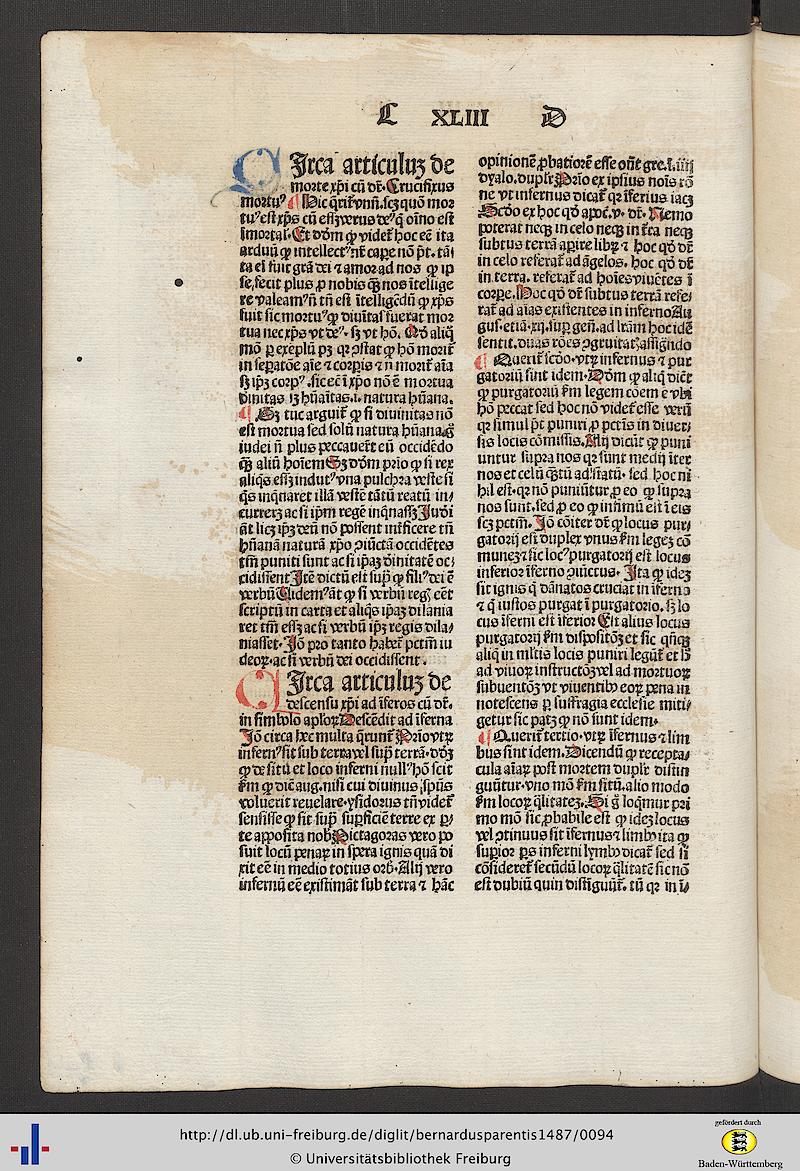 C XLIII D
CIrca articuluꝫ de
morte xp̄i cū dr̄. Crucifixus
mortuꝰ ¶ Hic q̄rit̄ vnū. scꝫ quō mor
tuꝰ est xp̄s cū esſꝫ verus deꝰ q̄ oīno est
īmortal. Et dōm ꝙ videt̄ hoc eē ita
arduū ꝙ intellectꝰ nr̄ caꝑe nō pt̄. tā
ta ei fuit gr̄a dei ⁊ amor ad nos ꝙ ip
se fecit plus ꝓ nobis qꝫ̄ nos ītellige
re valeamꝰ ñ tn̄ est ītelligēdū ꝙ xp̄s
fuit sic mortuꝰ ꝙ diuītas fuerat mor
tua nec xp̄s vt deꝰ. sꝫ vt hō. Qd̄ aliq̄
mō ꝑ exeplū pꝫ qꝛ ꝯstat ꝙ hō morit̄
in seꝑatōe aīe ⁊ corꝑis ⁊ ñ morit̄ aīa
sꝫ ip̄ꝫ corpꝰ. sic eē ī xp̄o nō ē mortua
diuinitas sꝫ hūaītas .i. natura hūana.
¶ Sꝫ tūc arguit̄ ꝙ si diuinitas nō
est mortua sed solū natura hūana. g̊
iudei ñ plus peccauer̄t eū occidēdo
qꝫ̄ aliū hoīem Sꝫ dōm prīo ꝙ si rex
aliq̄s esſꝫ indutꝰ vna pulchra veste si
q̄s inq̄naret illā vestē tātū reatū in-
currerꝫ ac si ip̄m regē inq̄naſꝫ Iudī
āt licꝫ ip̄ꝫ deū nō possent int̄ficere tn̄
hūanā naturā xp̄o ꝯiūctā occidētes
tm̄ puniti sunt ac si ip̄aꝫ diuitatē oc-
cidissent Itē dictū est sup̄ ꝙ filiꝰ dei ē
verbū Uidemꝰ āt ꝙ si verbū reg̃ eēt
scriptū in carta et aliq̄s ip̄aꝫ dilania
ret tm̄ esſꝫ ac si verbū ip̄ꝫ regis dila-
niasset. Iō pro tanto habēt pctm̄ iu
deoꝝ. ac si verbū dei occidissent.
CIrca articuluꝫ de
descensu xp̄i ad īferos cū dr̄.
in simbolo aploꝝ Descēdit ad īferna
Iō circa hec multa q̄runt̄ Prīo vtꝝ
infernꝰ sit sub terra vel sup̄ terrā. dōꝫ
ꝙ de situ et loco inferni nullꝰ hō scit
ẜm ꝙ dic̄ aug. nisi cui diuinus spūs
voluerit reuelare. ysidorus tn̄ videt̄
sensisse ꝙ sit sup̄ suꝑficiē terre ex ꝑ-
te apposita nob̄ Pictagoras vero po
suit locū penaꝝ in spera ignis quā di
xit eē in medio totius orb̄. Alij vero
infernū eē existimāt sub terra ⁊ hāc
opinionē ꝓbatiorē esse oñt gre. l. iiij
dyalo. duplr̄ Prīo ex ipsius noīs rō
ne vt infernus dicat̄ qꝛ īferius iacꝫ
Scdo ex hoc qd̄ apoc. v. dr̄. Nemo
poterat necꝫ in celo necꝫ in tr̄ca necꝫ
subtus terrā aꝑire librꝫ ⁊ hoc qd̄ dr̄
in celo referat̄ ad āgelos. hoc qd̄ dr̄
in terra. referat̄ ad hoīes viuētes ī
corꝑe. Hoc qd̄ dr̄ subtus terrā refe-
rat̄ ad aīas existentes in inferno Au
gus. etiā. xij. suꝑ gen̄. ad lr̄am hoc idē
sentit. duas rōes ꝯgruitat̄ assignādo
¶ Querit̄ scd̄o. vtꝝ infernus ⁊ pur
gatoriū sint idem. Dōm ꝙ aliq̄ dicūt
ꝙ purgatoriū ẜm legem cōem ē vbi
hō peccat sed hoc nō videt̄ esse verū
qꝛ simul pt̄ puniri ꝓ pctīs in diuer-
sis locis cōmissis. Alij dicūt ꝙ puni
untur supra nos qꝛ sunt medij īter
nos et celū qꝫ̄tū ad statū. sed hoc ni
hil est. qꝛ nō puniūtur ꝓ eo ꝙ supra
nos sunt. sed ꝓ eo ꝙ infimū est ī eis
scꝫ pctm̄. Iō cōiter dr̄ ꝙ locus pur-
gatorij est duplex vnus ẜm legeꝫ cō
muneꝫ ⁊ sic locꝰ purgatorij est locus
inferior īferno ꝯiūctus. Ita ꝙ ideꝫ
sit ignis q̄ dānatos cruciat in īferno
⁊ q̄ iustos purgat ī purgatorio. sꝫ lo
cus īferni est īferior Est alius locus
purgatorij ẜm dispositōꝫ et sic qn̄qꝫ
aliq̄ in mītis locis puniri legūt̄ et h̄
ad viuoꝝ instructōꝫ vel ad mortuoꝝ
subuentōꝫ vt viuentib⁹ eoꝝ pena in
notescens ꝑ suffragia ecclesie miti-
getur sic patꝫ ꝙ nō sunt idem.
¶ Querit̄ tertio. vtꝝ īfernus ⁊ lim
bus sint idem. Dicendū ꝙ recepta-
cula aīaꝝ post mortem duplr̄ distin
guūtur. vno mō ẜm sitū. alio modo
ẜm locoꝝ q̄litateꝫ. Si g̊ loq̄mur pri
mo mō sic ꝓbabile est ꝙ ideꝫ locus
vel ꝯtinuus sit īfernus ⁊ limb⁹ ita ꝙ
suꝑior ꝑs inferni lymb⁹ dicat̄ sed si
cōsideret̄ secūdū locoꝝ q̄litatē sic nō
est dubiū quin distīguūt̄. tū qꝛ in ī-
http://dl.ub.uni-freiburg.de/diglit/bernardusparentis1487/0094
© Universitätsbibliothek Freiburg
gefördert durch
Baden-Württemberg